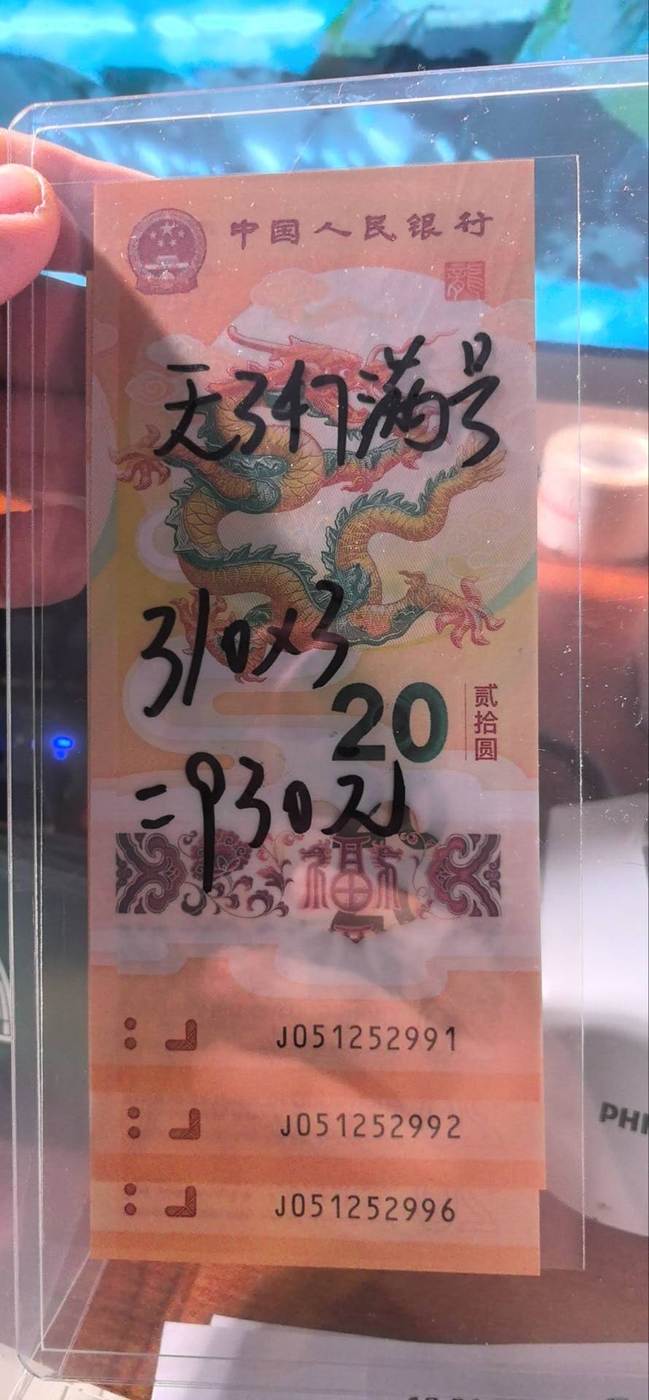 中国人民银行
龍
无347满号
310×3
20
贰拾圆
=930元
福
J051252991
J051252992
J051252996
PHI